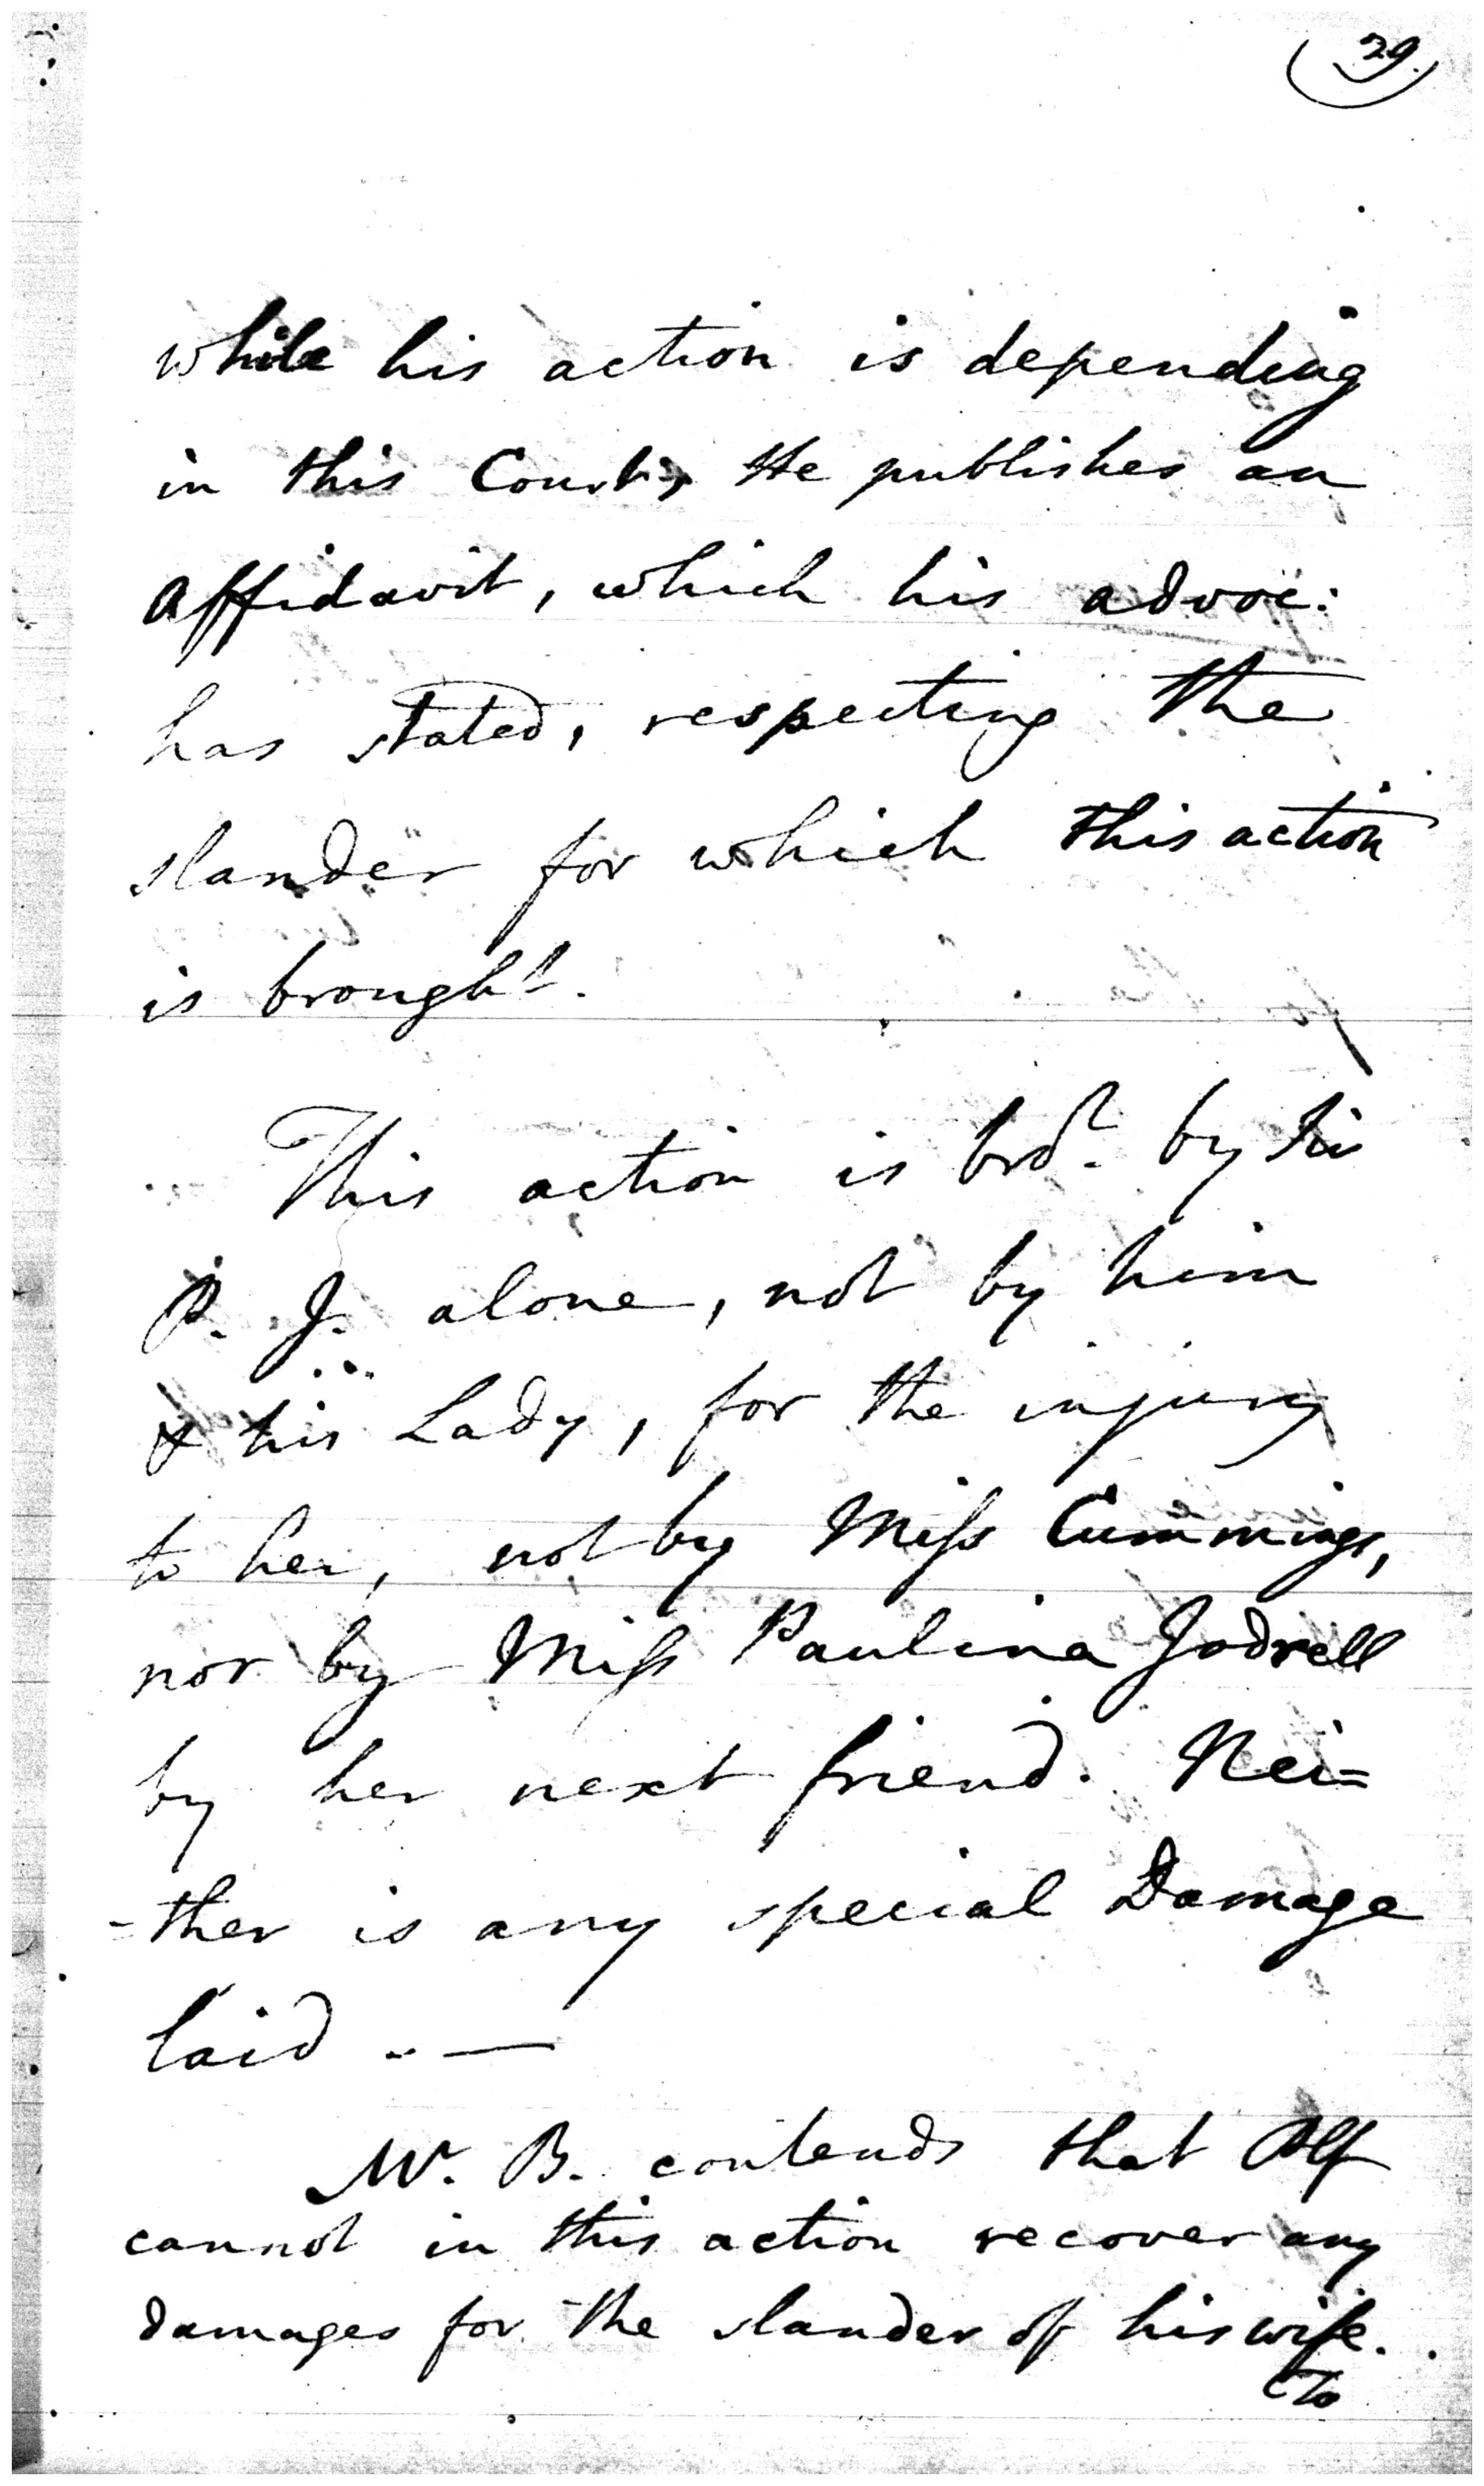 29.
while his action is depending
in this Court, He publishes an
Affidavit, which his advoc:
has stated, respecting the
slander for which this action
is brought.
This action is brot. by Sir
P. J. alone, not by him
& his Lady, for the injury
to her, not by Miss Cummings,
nor by Miss Paulina Jodrell
by her next friend. Nei=
-ther is any special Damage
laid. —
Mr. B. contends that Plf
cannot in this action recover any
damages for the slander of his wife.
To